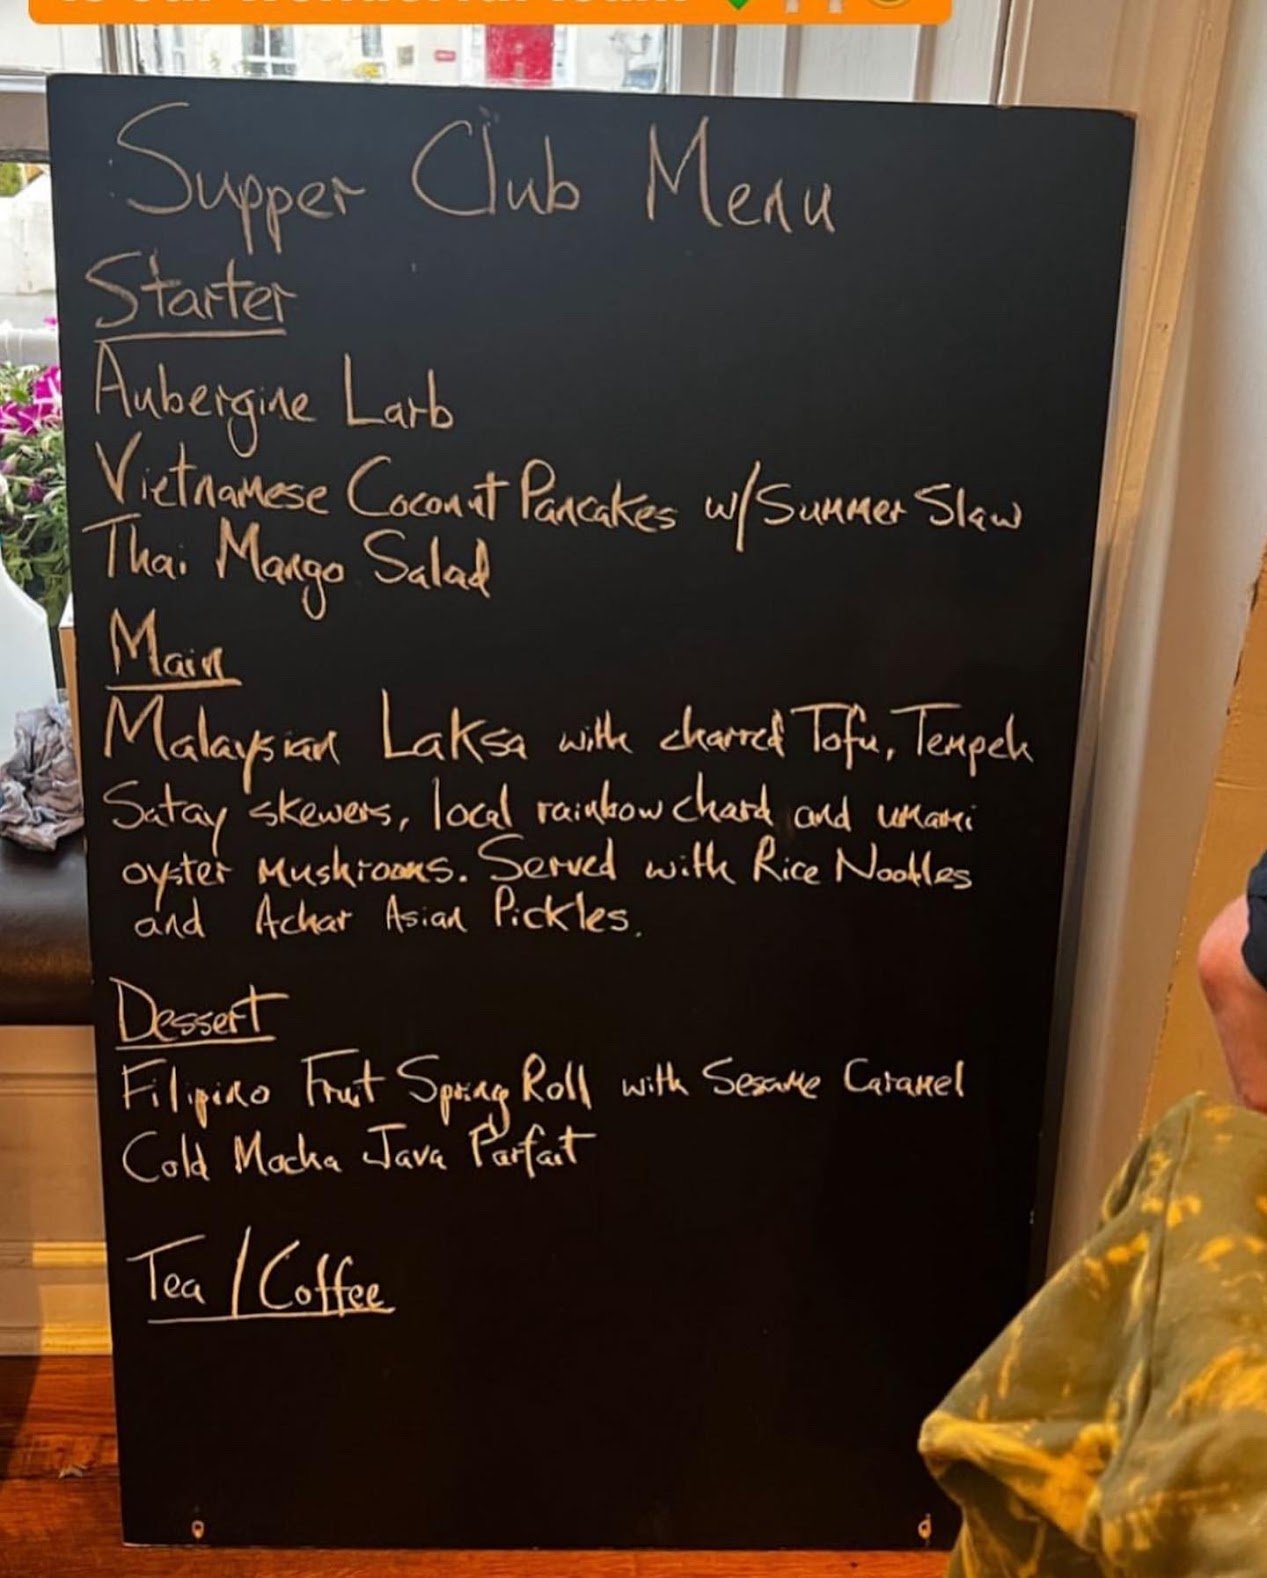 Supper Club Menu
Starter
Aubergine Larb
Vietnamese Coconut Pancakes w/Summer Slaw
Thai Mango Salad
Main
Malaysian Laksa with charred Tofu, Tempeh
Satay skewers, local rainbow chard and umami
oyster Mushrooms. Served with Rice Noodles
and Achar Asian Pickles.
Dessert
Filipino Fruit Spring Roll with Sesame Caramel
Cold Mocha Java Parfait
Tea / Coffee